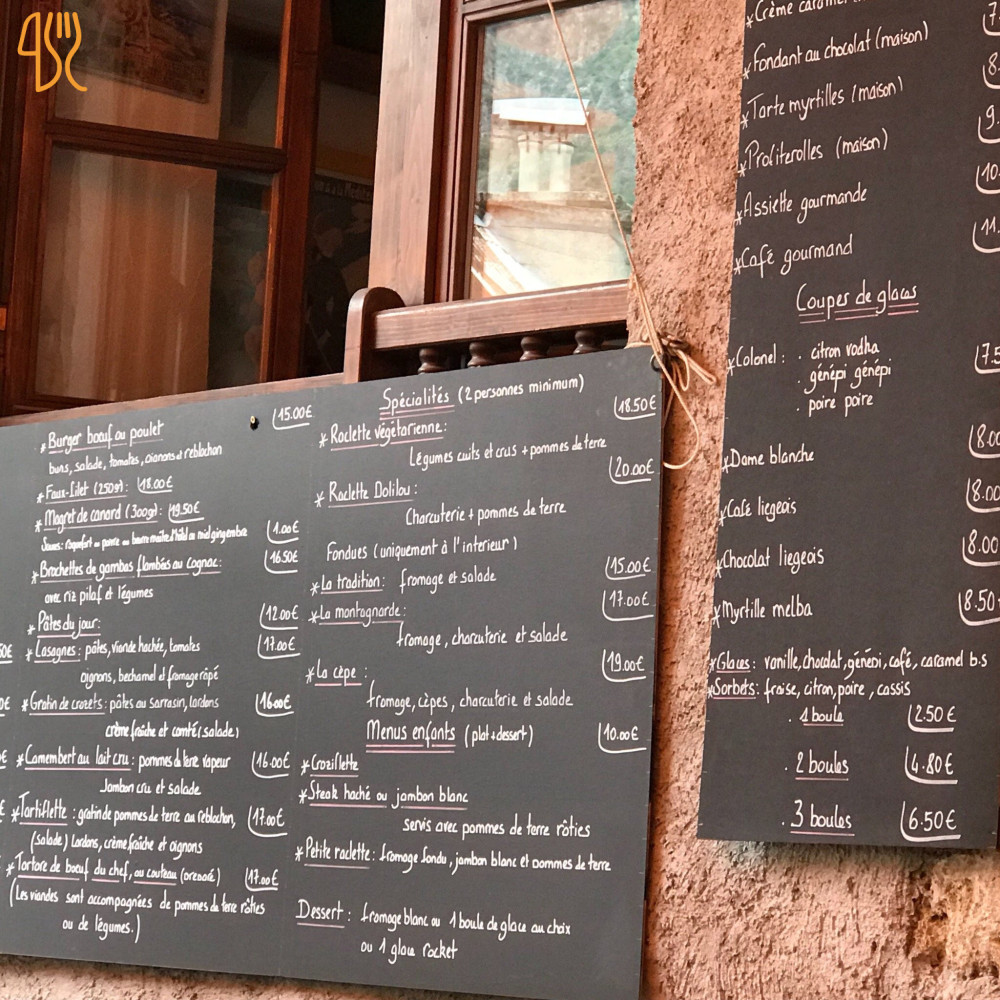 15.00€
* Burger bœuf ou poulet
buns, salade, tomates, oignons et reblochon
* Faux-filet (250gr) : 18.00€
* Magret de canard (300gr) : 19.50€
Sauces: roquefort ou poivre ou beurre maître d'hôtel ou miel gingembre 1.00€
* Brochettes de gambas flambées au cognac : 16.50€
avec riz pilaf et légumes
* Pâtes du jour : 12.00€
* Lasagnes : pâtes, viande hachée, tomates 17.00€
oignons, bechamel et fromage râpé
* Gratin de crozets : pâtes au sarrasin, lardons 16.00€
crème fraîche et comté (salade)
* Camembert au lait cru : pommes de terre vapeur 16.00€
Jambon cru et salade
* Tartiflette : gratin de pommes de terre au reblochon, 17.00€
(salade) lardons, crème fraîche et oignons
* Tartare de bœuf du chef, au couteau (préparé) 17.00€
(Les viandes sont accompagnées de pommes de terre rôties
ou de légumes.)
Spécialités (2 personnes minimum)
* Raclette végétarienne : 18.50€
Légumes cuits et crus + pommes de terre
* Raclette Dolilou : 20.00€
Charcuterie + pommes de terre
Fondues (uniquement à l'interieur)
* La tradition : fromage et salade 15.00€
* La montagnarde : 17.00€
fromage, charcuterie et salade
* La cèpe : 19.00€
fromage, cèpes, charcuterie et salade
Menus enfants (plat + dessert) 10.00€
* Croziflette
* Steak haché ou jambon blanc
servis avec pommes de terre rôties
* Petite raclette : fromage fondu, jambon blanc et pommes de terre
Dessert : fromage blanc ou 1 boule de glace au choix
ou 1 glace rocket
* Crème caramel
* Fondant au chocolat (maison)
* Tarte myrtilles (maison)
* Profiterolles (maison)
* Assiette gourmande
* Café gourmand
Coupes de glaces
* Colonel : . citron vodka
. génépi génépi
. poire poire
* Dame blanche 8.00
* Café liegeois 8.00
* Chocolat liegeois 8.00
* Myrtille melba 8.50
* Glaces : vanille, chocolat, génépi, café, caramel b.s
* Sorbets : fraise, citron, poire, cassis
. 1 boule 2.50€
. 2 boules 4.80€
. 3 boules 6.50€